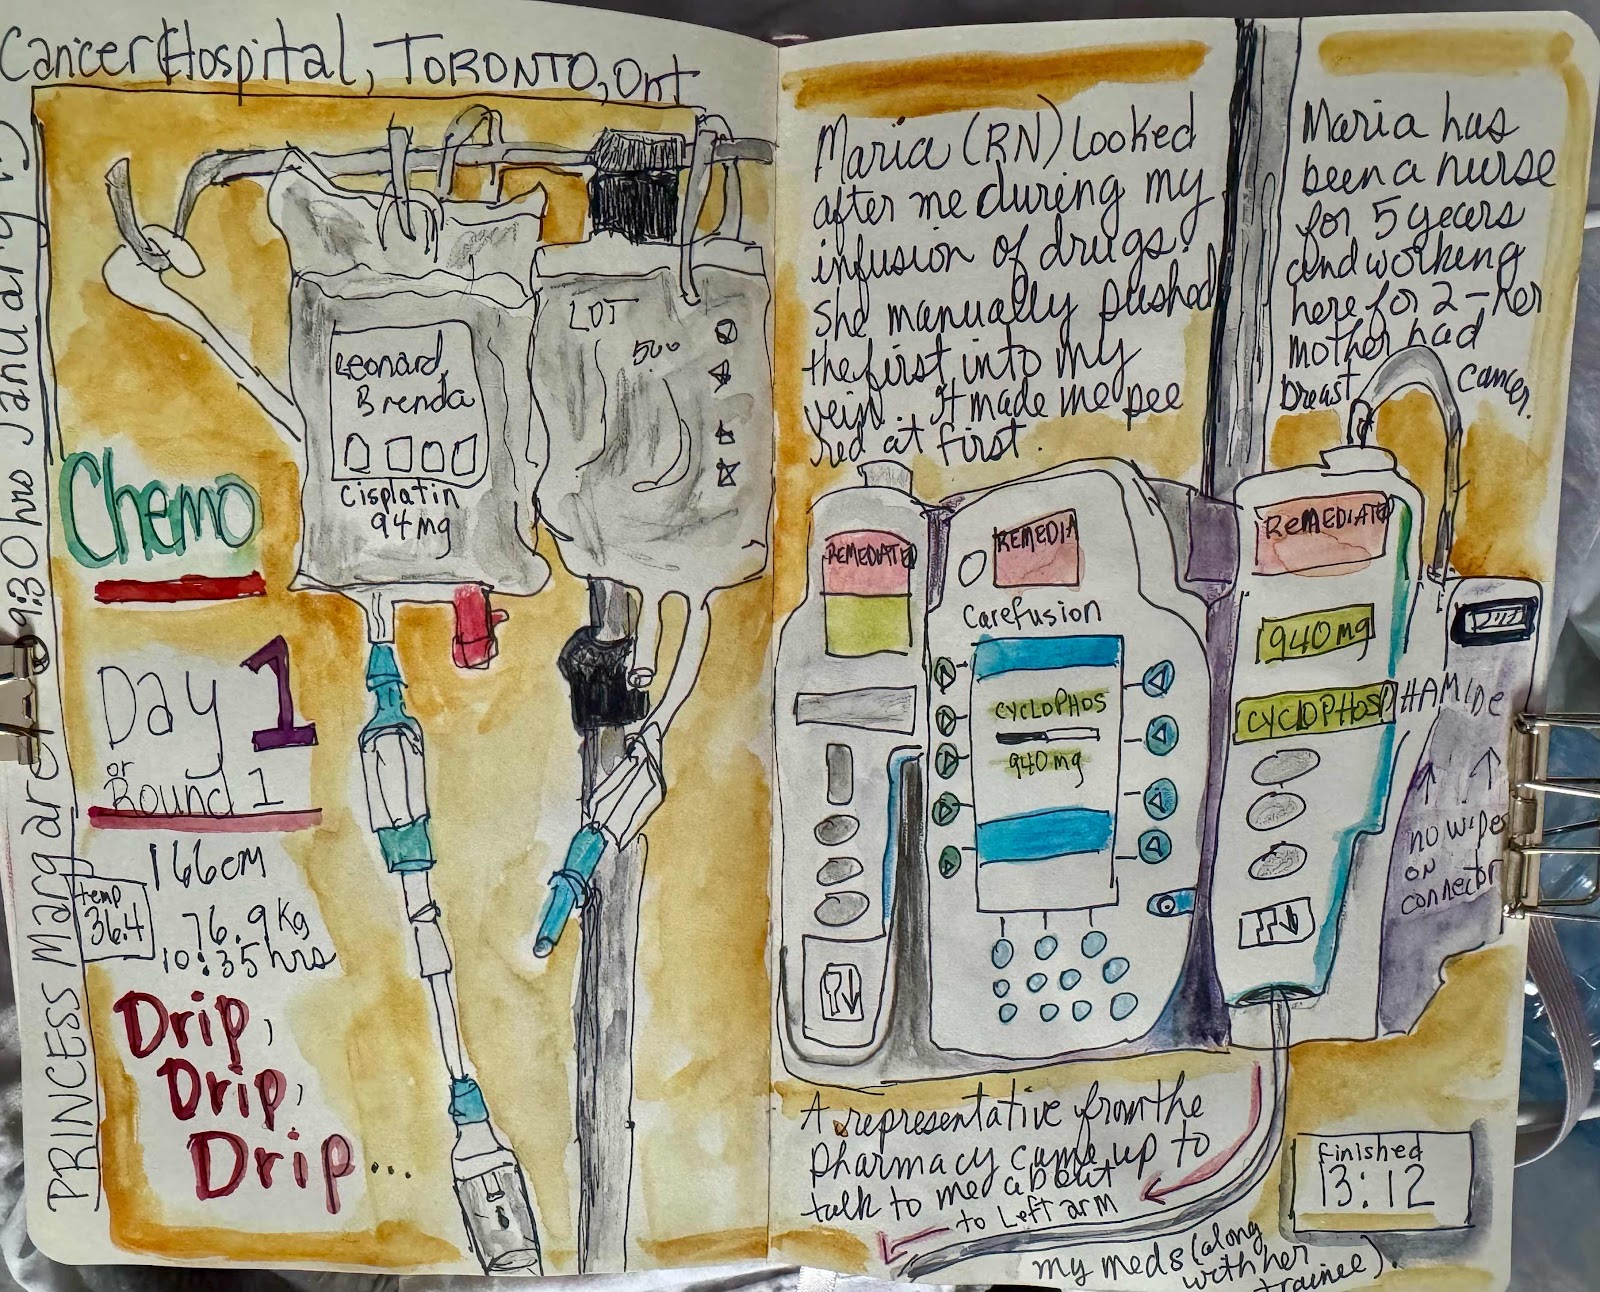 Cancer Hospital, TORONTO, Ont
PRINCESS Margaret
9:30 hrs January
Leonard,
Brenda
Cisplatin
94 mg
LOT
500
Chemo
Day 1
or
Round 1
166cm
temp
36.4
76.9 Kg
10:35 hrs
Drip,
Drip,
Drip...
Maria (RN) looked
after me during my
infusion of drugs.
She manually pushed
the first into my
vein. It made me pee
red at first.
Maria has
been a nurse
for 5 years
and working
here for 2 - her
mother had
breast cancer.
REMEDIATED
REMEDIA
Carefusion
CYCLOPHOS
940 mg
REMEDIATED
940 mg
CYCLOPHOSPHAMIDE
no wipes
on
connector
A representative from the
pharmacy came up to
talk to me about
to Left arm
my meds (along
with her
trainee).
Finished
13:12